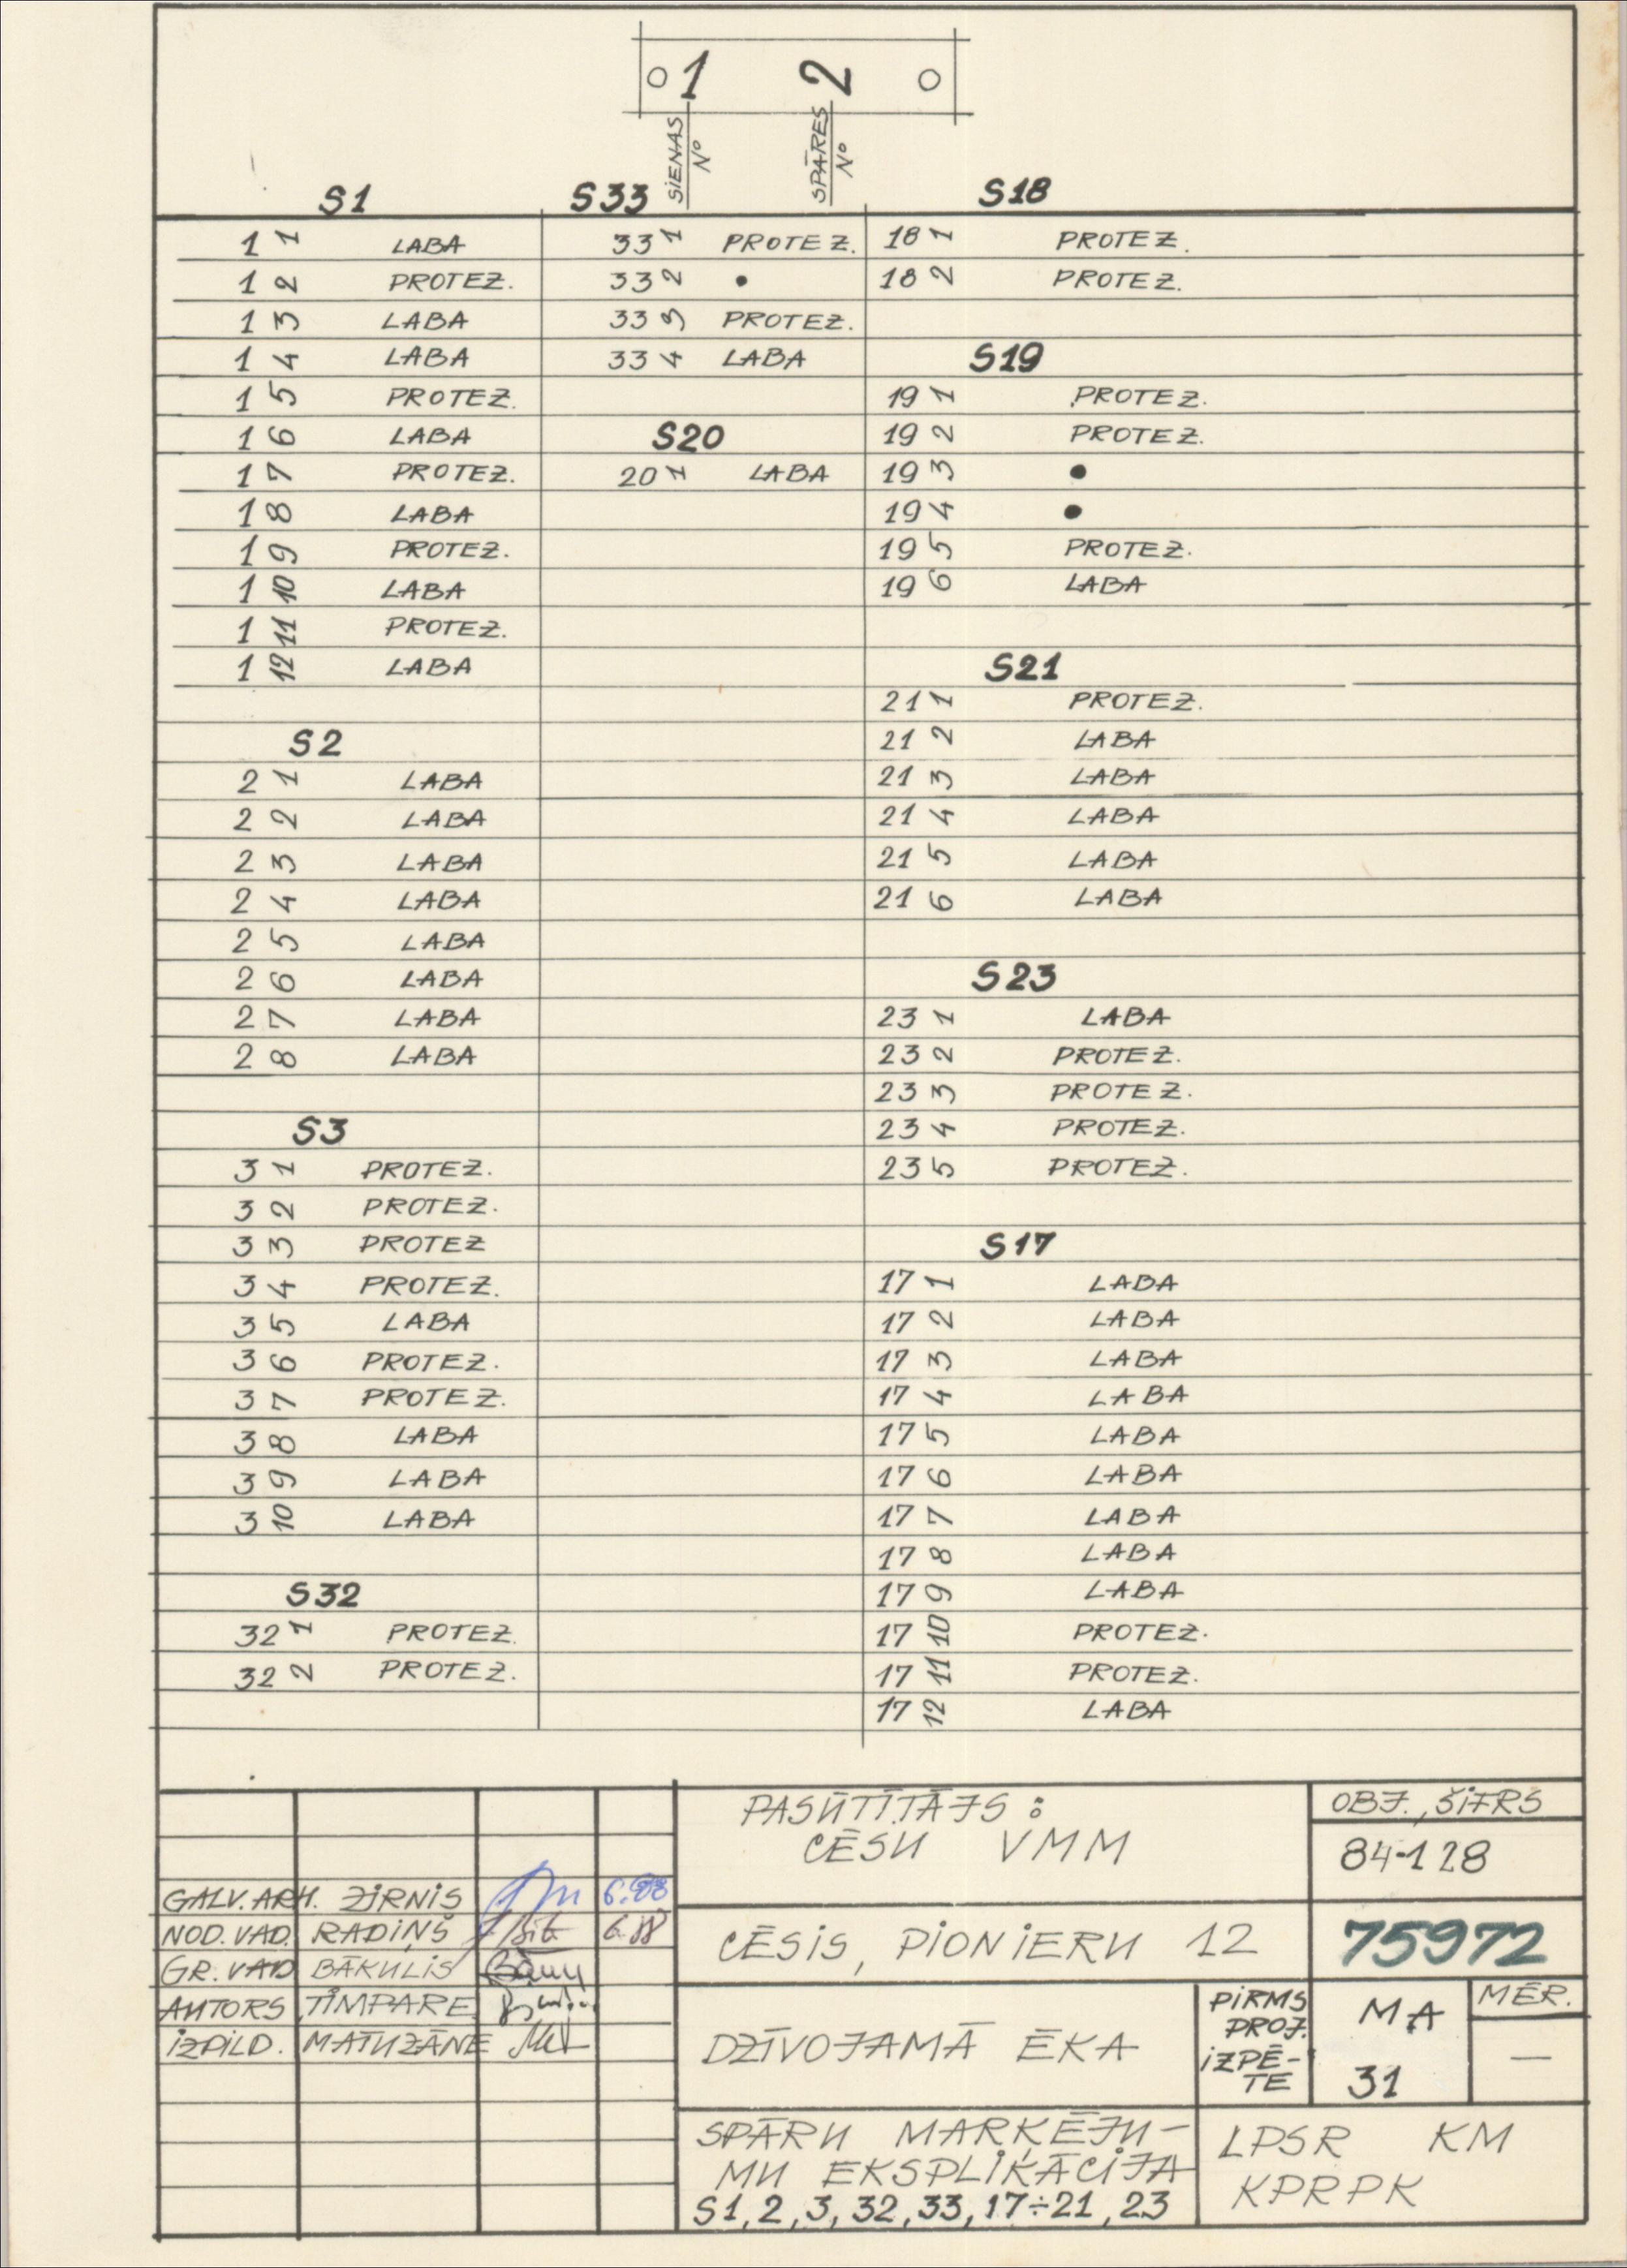 1 2
SIENAS No
SPĀRES No
S1
1 1 LABA
1 2 PROTEZ.
1 3 LABA
1 4 LABA
1 5 PROTEZ.
1 6 LABA
1 7 PROTEZ.
1 8 LABA
1 9 PROTEZ.
1 10 LABA
1 11 PROTEZ.
1 12 LABA
S2
2 1 LABA
2 2 LABA
2 3 LABA
2 4 LABA
2 5 LABA
2 6 LABA
2 7 LABA
2 8 LABA
S3
3 1 PROTEZ.
3 2 PROTEZ.
3 3 PROTEZ
3 4 PROTEZ.
3 5 LABA
3 6 PROTEZ.
3 7 PROTEZ.
3 8 LABA
3 9 LABA
3 10 LABA
S32
32 1 PROTEZ.
32 2 PROTEZ.
S33
33 1 PROTEZ.
33 2 •
33 3 PROTEZ.
33 4 LABA
S20
20 1 LABA
S18
18 1 PROTEZ.
18 2 PROTEZ.
S19
19 1 PROTEZ.
19 2 PROTEZ.
19 3 •
19 4 •
19 5 PROTEZ.
19 6 LABA
S21
21 1 PROTEZ.
21 2 LABA
21 3 LABA
21 4 LABA
21 5 LABA
21 6 LABA
S23
23 1 LABA
23 2 PROTEZ.
23 3 PROTEZ.
23 4 PROTEZ.
23 5 PROTEZ.
S17
17 1 LABA
17 2 LABA
17 3 LABA
17 4 LABA
17 5 LABA
17 6 LABA
17 7 LABA
17 8 LABA
17 9 LABA
17 10 PROTEZ.
17 11 PROTEZ.
17 12 LABA
GALV. ARH. ZIRNIS 6.88
NOD. VAD. RADIŅŠ 6.88
GR. VAD BĀKULIS
AUTORS TIMPARE
IZPILD. MATUZĀNE
PASŪTĪTĀJS:
CĒSU VMM
OBJ., ŠIFRS
84-128
CĒSIS, PIONIERU 12
75972
DZĪVOJAMĀ ĒKA
PIRMS
PROJ.
IZPĒ-
TE
MA
31
MĒR.
—
SPĀRU MARĶĒJU-
MU EKSPLIKĀCIJA
S1, 2, 3, 32, 33, 17÷21, 23
LPSR KM
KPRPK